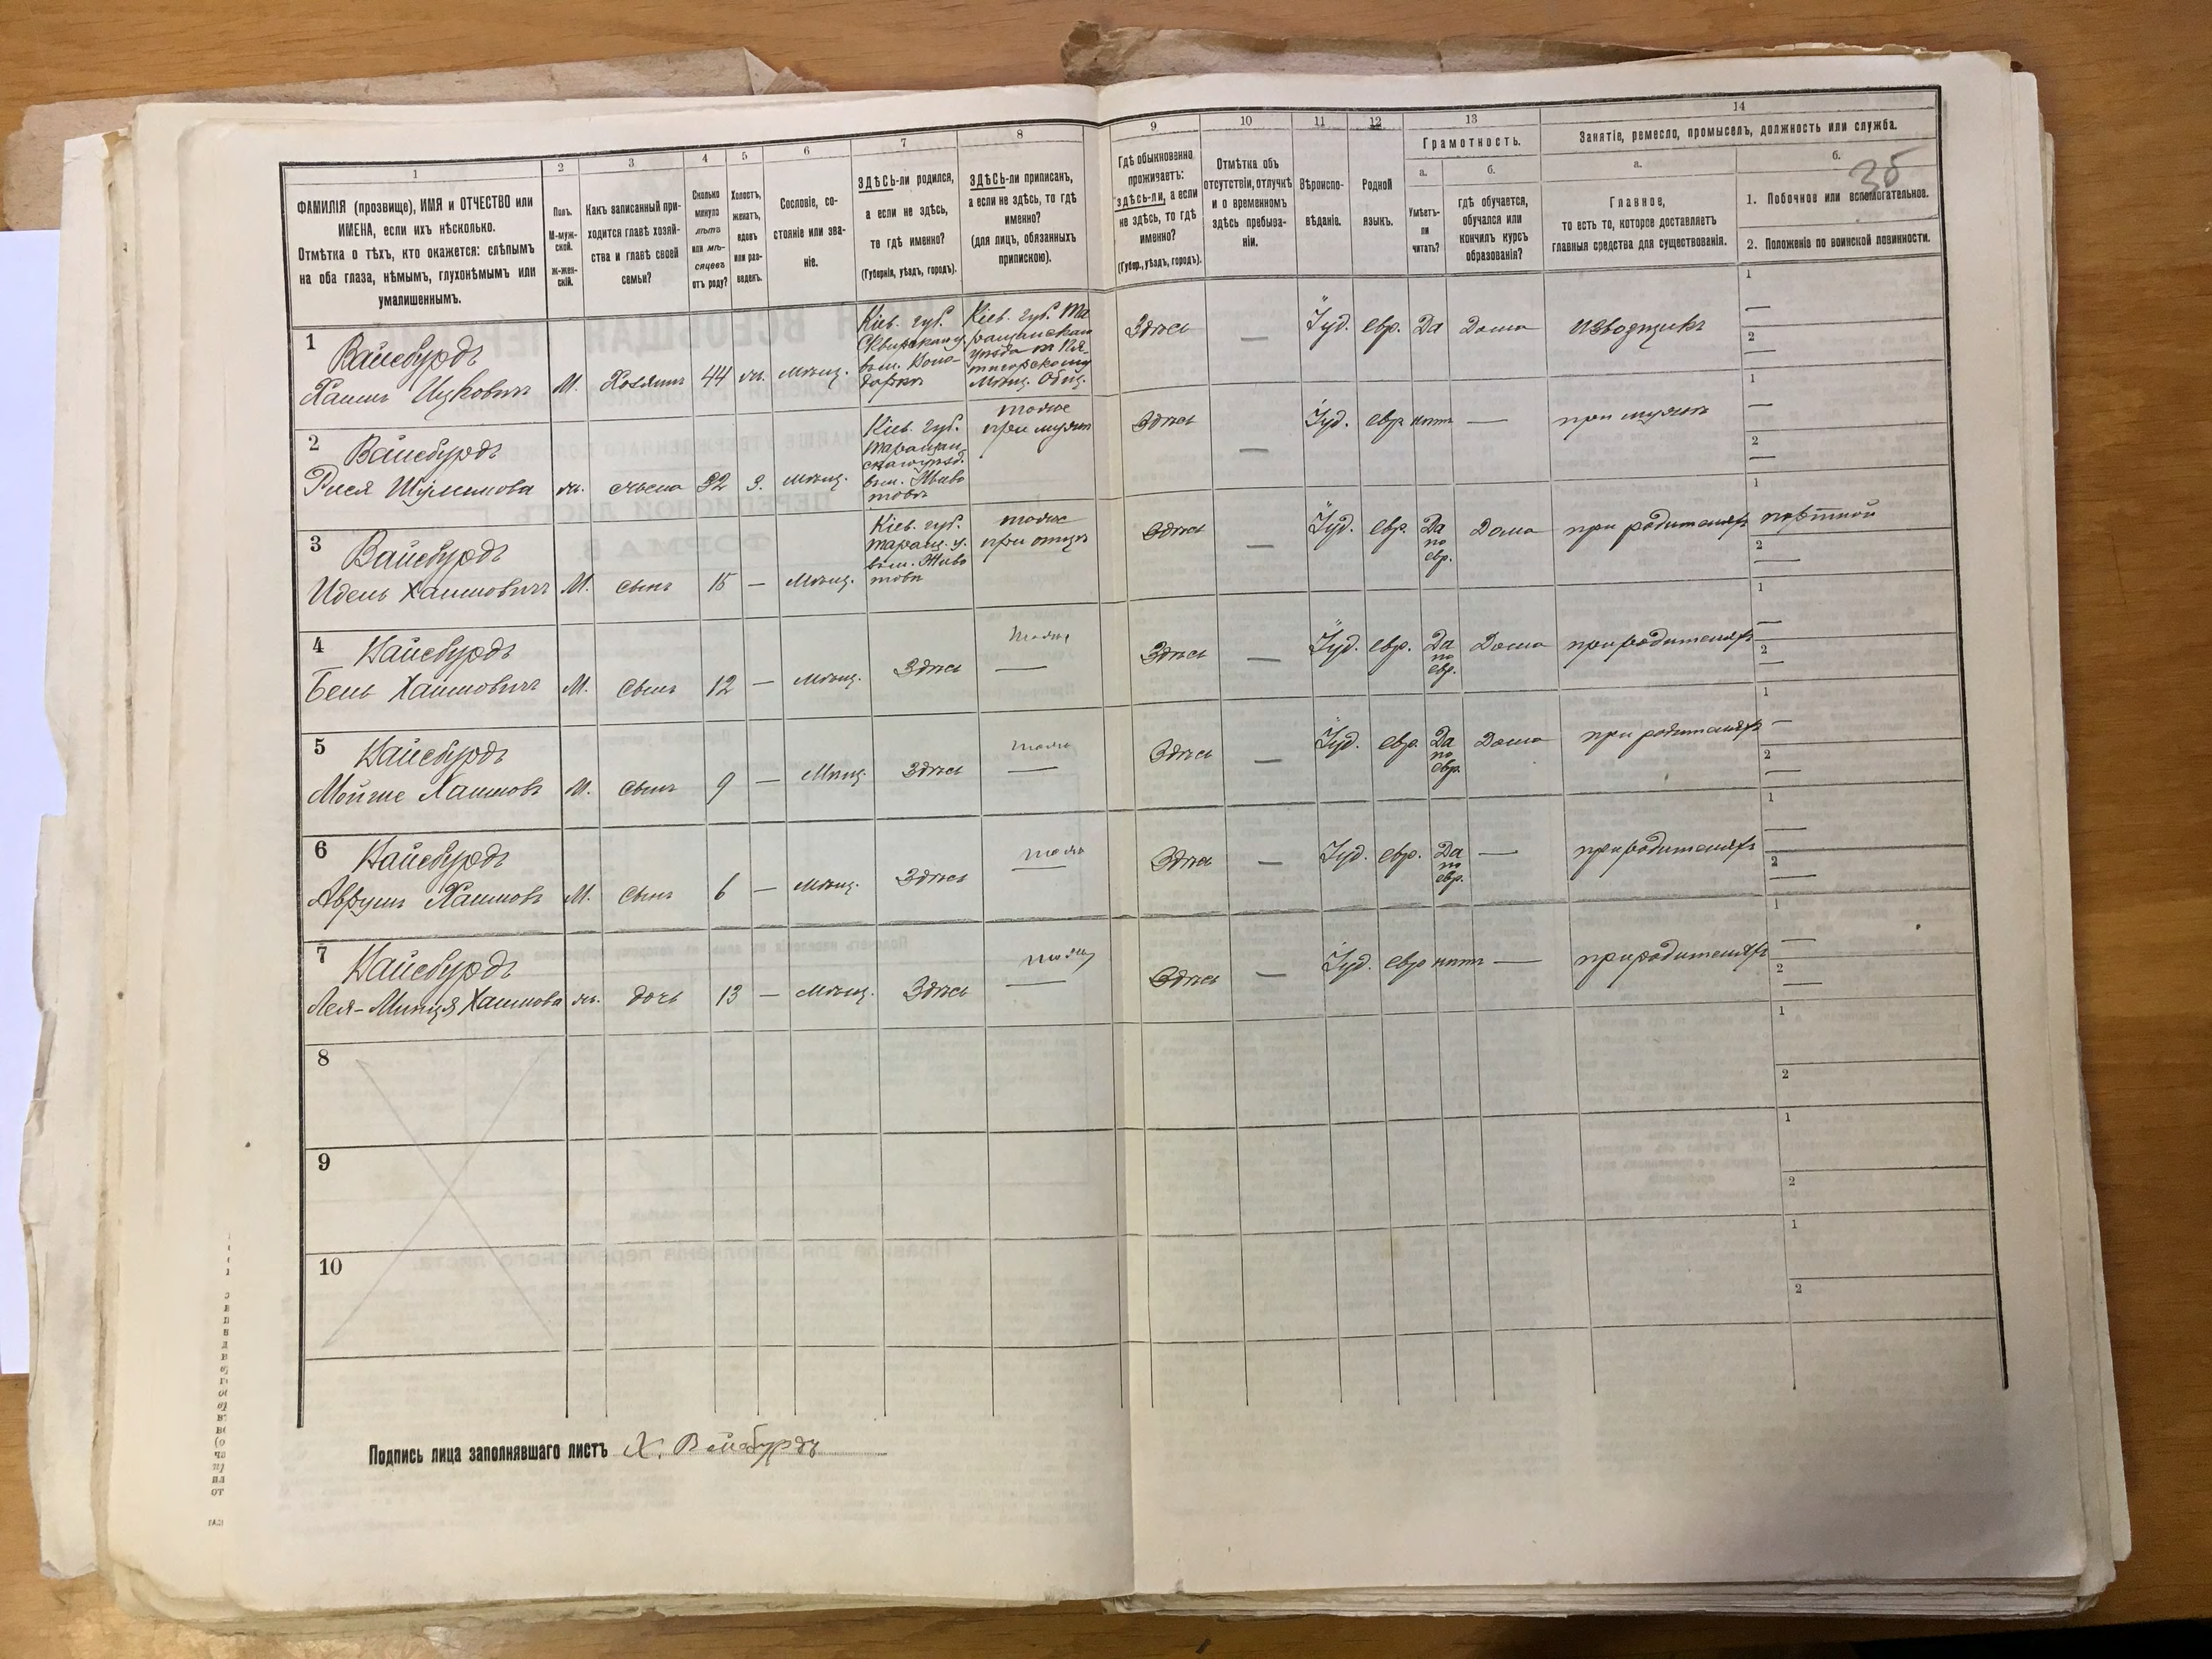 1
2
3
4
5
6
7
8
9
10
11
12
13
14
36
ФАМИЛІЯ (прозвище), ИМЯ и ОТЧЕСТВО или
ИМЕНА, если ихъ нѣсколько.
Отмѣтка о тѣхъ, кто окажется: слѣпымъ
на оба глаза, нѣмымъ, глухонѣмымъ или
умалишеннымъ.
Полъ.
М-муж-
ской.
ж-жен-
скій.
Какъ записанный при-
ходится главѣ хозяй-
ства и главѣ своей
семьи?
Сколько
минуло
лѣтъ
или мѣ-
сяцевъ
отъ роду?
Холостъ,
женатъ,
вдовъ
или раз-
веденъ.
Сословіе, со-
стояніе или зва-
ніе.
ЗДѢСЬ-ли родился,
а если не здѣсь,
то гдѣ именно?
(Губернія, уѣздъ, городъ).
ЗДѢСЬ-ли приписанъ,
а если не здѣсь, то гдѣ
именно?
(для лицъ, обязанныхъ
припискою).
Гдѣ обыкновенно
проживаетъ:
здѣсь-ли, а если
не здѣсь, то гдѣ
именно?
(Губер., уѣздъ, городъ).
Отмѣтка объ
отсутствіи, отлучкѣ
и о временномъ
здѣсь пребыва-
ніи.
Вѣроиспо-
вѣданіе.
Родной
языкъ.
Грамотность.
а.
Умѣетъ-
ли
читать?
б.
гдѣ обучается,
обучался или
кончилъ курсъ
образованія?
Занятіе, ремесло, промыселъ, должность или служба.
а.
Главное,
то есть то, которое доставляетъ
главныя средства для существованія.
б.
1. Побочное или вспомогательное.
2. Положеніе по воинской повинности.
1
Вайсбурдъ
Хаимъ Ицковичъ
М.
Хозяинъ
44
ж.
мѣщ.
Кіев. губ.
Сквирскаго у.
Кіев. губ. Та
ращанскаго
уѣзда
мѣщ. Общ.
Здѣсь
—
Іуд.
евр.
Да
Дома
извозщикъ
1
—
2
—
2
Вайсбурдъ
Рися Шулимова
ж.
жена
32
З.
мѣщ.
Кіев. губ.
таращан
скаго уѣзд.
въ м. Живо
товъ
тоже
при мужѣ
Здѣсь
—
Іуд.
евр
нѣтъ
—
при мужѣ
1
—
2
—
3
Вайсбурдъ
Идель Хаимовичъ
М.
сынъ
15
—
Мѣщ.
Кіев. губ.
таращ. у.
въ м. Живо
товѣ
тоже
при отцѣ
Здѣсь
—
Іуд.
евр.
Да
по
евр.
Дома
при родителяхъ
1
портной
2
—
4
Вайсбурдъ
Бень Хаимовичъ
М.
сынъ
12
—
мѣщ.
Здѣсь
тоже
—
Здѣсь
—
Іуд.
евр.
Да
по
евр.
Дома
при родителяхъ
1
—
2
—
5
Вайсбурдъ
Мойше Хаимовъ
М.
сынъ
9
—
Мѣщ.
Здѣсь
тоже
—
Здѣсь
—
Іуд.
евр.
Да
по
евр.
Дома
при родителяхъ
1
—
2
—
6
Вайсбурдъ
Аврумъ Хаимовъ
М.
сынъ
6
—
мѣщ.
Здѣсь
тоже
—
Здѣсь
—
Іуд.
евр.
Да
по
евр.
—
при родителяхъ
1
—
2
—
7
Вайсбурдъ
Лея-Минця Хаимова
ж.
дочь
13
—
мѣщ.
Здѣсь
тоже
—
Здѣсь
—
Іуд.
евр
нѣтъ
—
при родителяхъ
1
—
2
—
8
1
2
9
1
2
10
1
2
Подпись лица заполнявшаго листъ Х. Вайсбурдъ